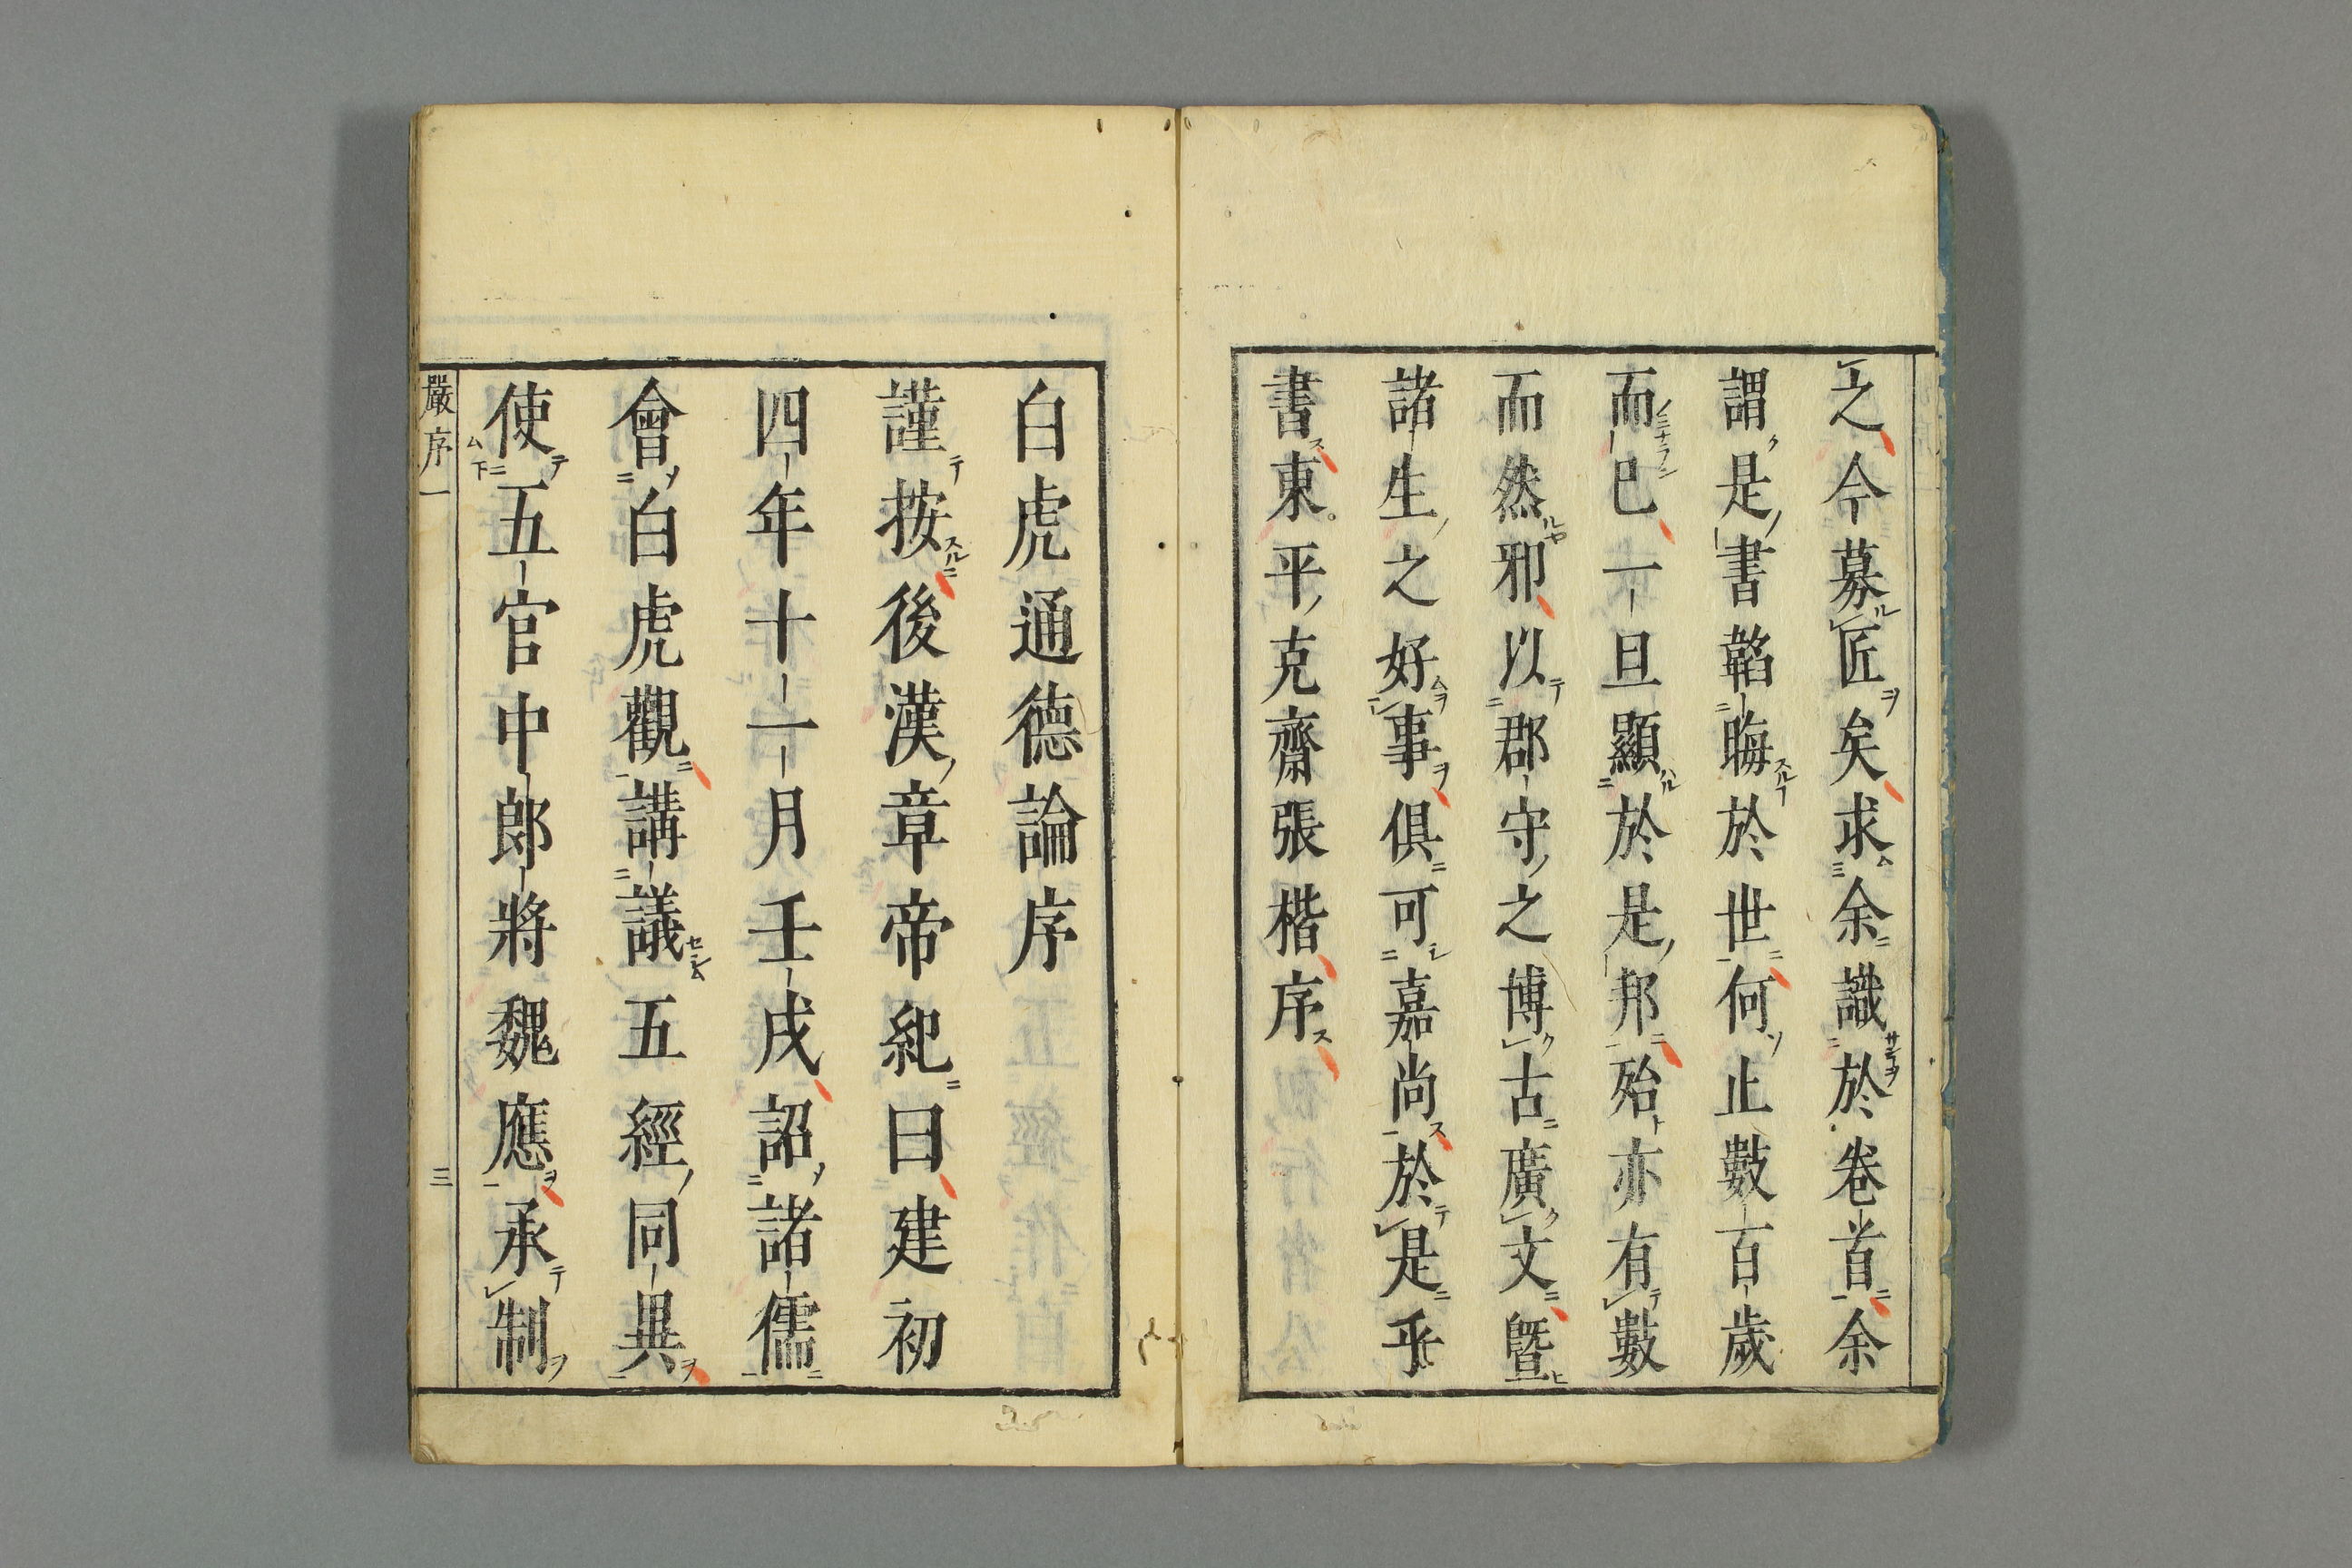 之今募匠矣求余識於卷首余
謂是書韜晦於世何止數百歲
而已一旦顯於是邦殆亦有數
而然邪以郡守之博古廣文曁
諸生之好事俱可嘉尚於是乎
書東平克齋張楷序
白虎通德論序
謹按後漢章帝紀曰建初
四年十一月壬戌詔諸儒
會白虎觀講議五經同異
使五官中郎將魏應承制
嚴序一
三